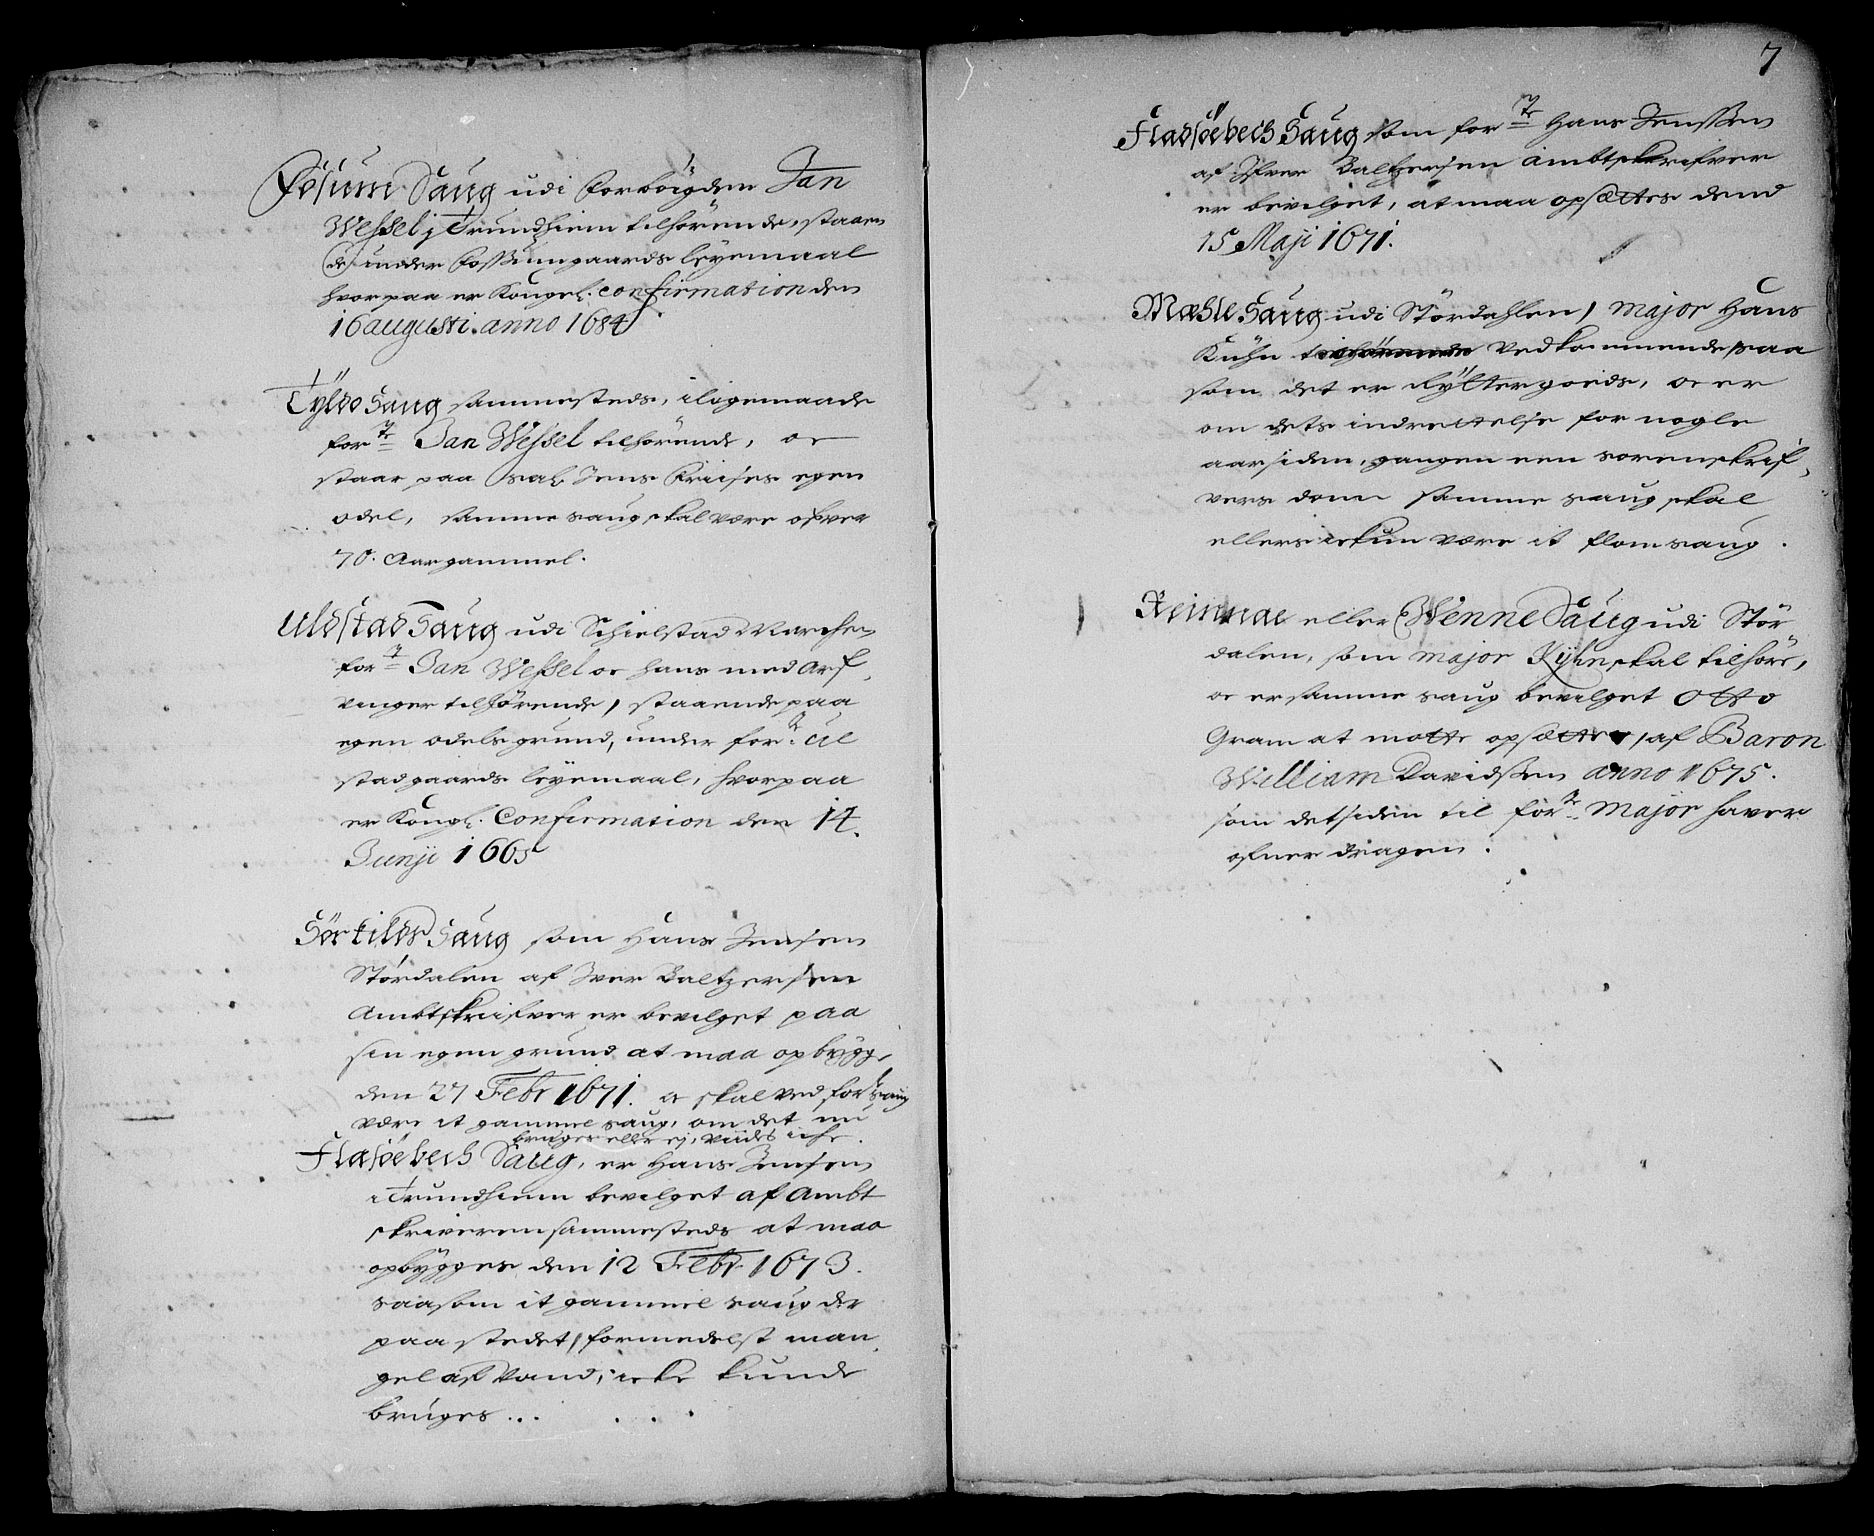 Fosum Saug udi Forbögden Jan
Wessel j Trundhiem tilhörende, staaen
de under Fossumgaards leyemaal
hvorpaa er Kongel. confirmation den
16 augusti. anno 1684.
Tyldo Saug sammesteds, i ligemaade
for.te Jan Wessel tilhörende, oc
staar paa Sal. Jens Kriises egen
odel, samme saug skal være ofver
70. Aar gammel.
Uldstad Saug udi Schielstad Marchen
for.te Jan Wessel oc hans med Arf,
vinger tilhørende, staaende paa
egen odels grund, under for.te Ul
stadgaards leyemaal, hvorpaa
er Kongl. Confirmation den 14.
Junji 1665
Sör tilder Saug som Hans Jensen
Stördalen af Iver Baltzersen
Ambtskrifver er bevilget paa
sin egen grund at maa opbygge,
den 27 Febr 1671. oc skal ved for.te saug
være it gammel saug, om det nu
bruges eller ej, viides iche.
Flasöe bech Saug, er Hans Jensen
i Trundhiem bevilget af Ambt
skriveren sammesteds at maa
opbygges den 12 Febr 1673.
saasom it gammel saug der
paa stedet, formedelst man,
gel af Vand, icke kunde
bruges...
7
Fladsöebech Saug som for.te Hans Jenssen
af Ifver Baltzersen ambtskrifver
er bevilget, at maa opsættes dend
15 Maji 1671.
Mæhle Saug udi Stördahlen, Major Hans
Kühn tilhörende vedkommende, saa
som det er Rytter goeds, oc er
om dets indrettelse for nogle
aar siden, gangen een sorenskrif,
vers dom samme saug skal
ellers ickun være it flomsaug.
Reinnae eller Wenne Saug udi Stör
dalen, som major Kyhn skal tilhöre,
oc er samme saug bevilget Otto
Gram at motte opsætte, af Baron
William Davidssen anno 1675.
som det siden til for.te Major haver
ofver dragen.